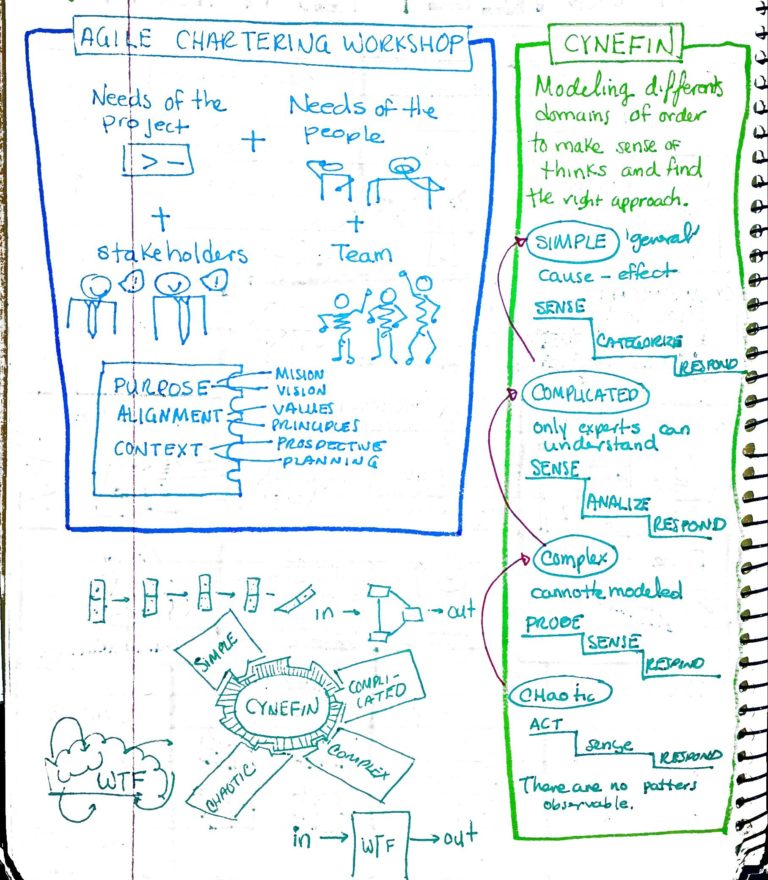 AGILE CHARTERING WORKSHOP
Needs of the
project
+
Needs of the
people
> -
+
+
Stakeholders
Team
!
!
PURPOSE
ALIGNMENT
CONTEXT
MISION
VISION
VALUES
PRINCIPLES
PROSPECTIVE
PLANNING
CYNEFIN
Modeling differents
domains of order
to make sense of
thinks and find
the right approach.
SIMPLE 'general'
cause - effect
SENSE
CATEGORIZE
RESPOND
COMPLICATED
only experts can
understand
SENSE
ANALIZE
RESPOND
Complex
cannotbe modeled
PROBE
SENSE
RESPOND
CHAOTIC
ACT
sense
RESPOND
There are no patters
observable.
in → → out
SIMPLE
COMPLI-
CATED
CYNEFIN
CHAOTIC
COMPLEX
WTF
in → WTF → out